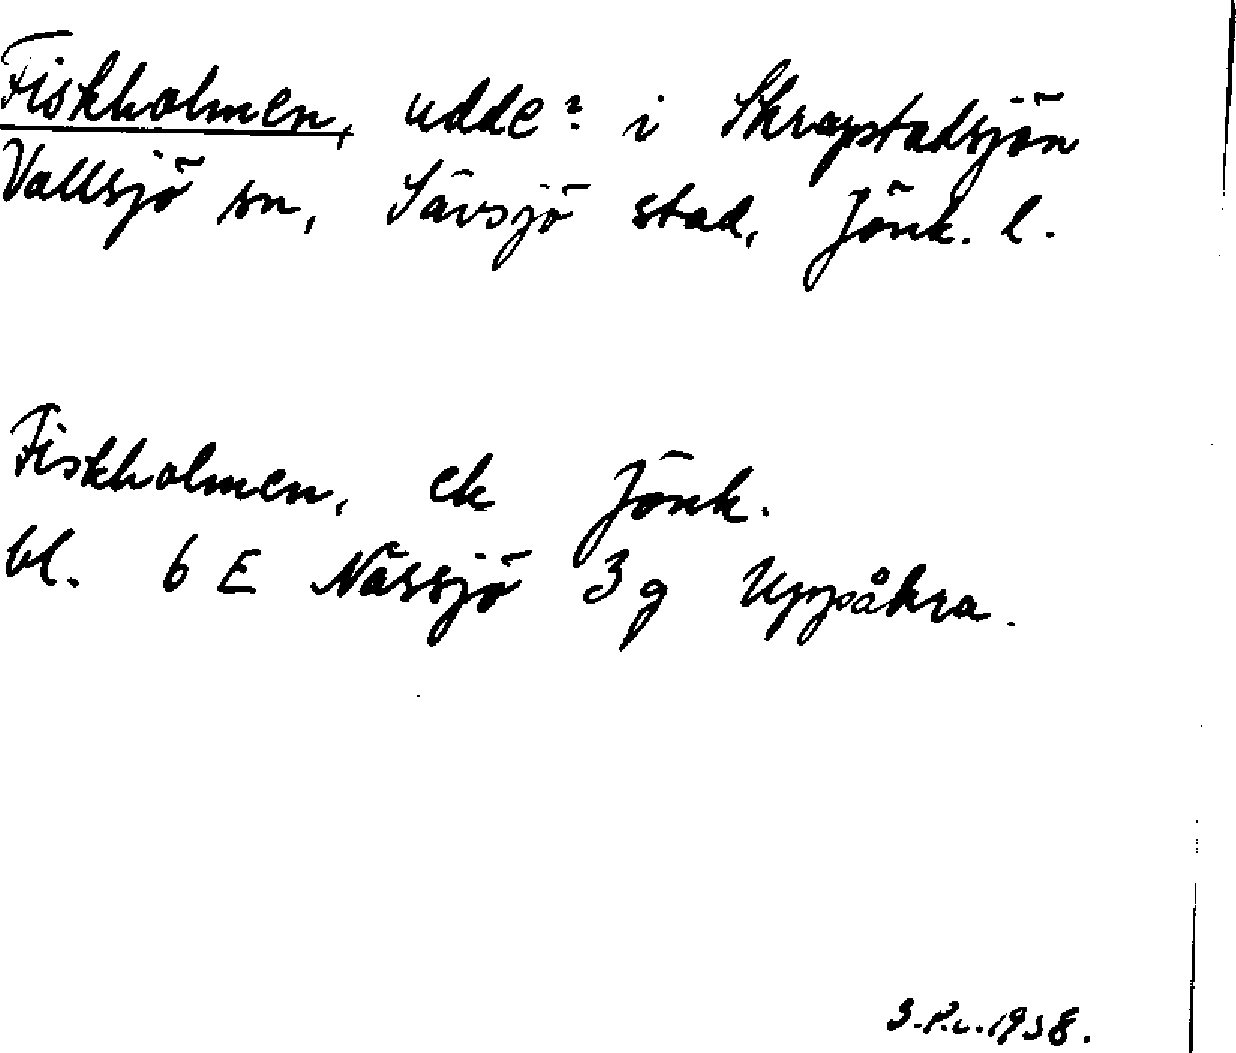 Fiskholmen, udde? i Skrapstadsjön
Vallsjö sn, Sävsjö stad, Jönk. l.
Fiskholmen, ek Jönk.
bl. 6 E Nässjö 3 g Uppåkra.